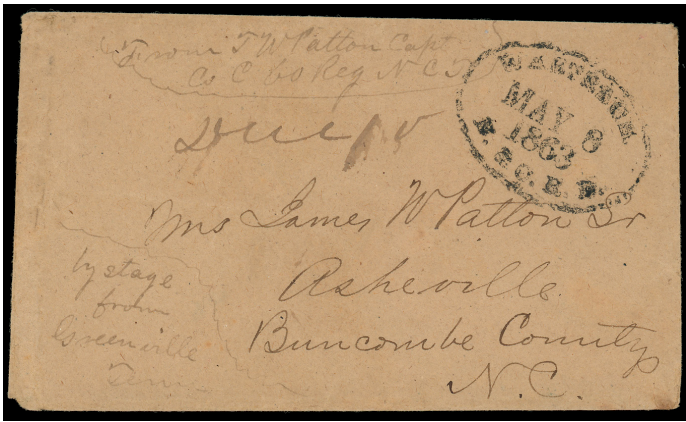 From T W Patton Capt
Co C. 60 Reg N C T
WARTRACE
MAY 8
1863
N. & C. R. R.
Due 10
Mrs James W Patton Sr
Asheville
Buncombe County
N. C.
by stage
from
Greenville
Tenn